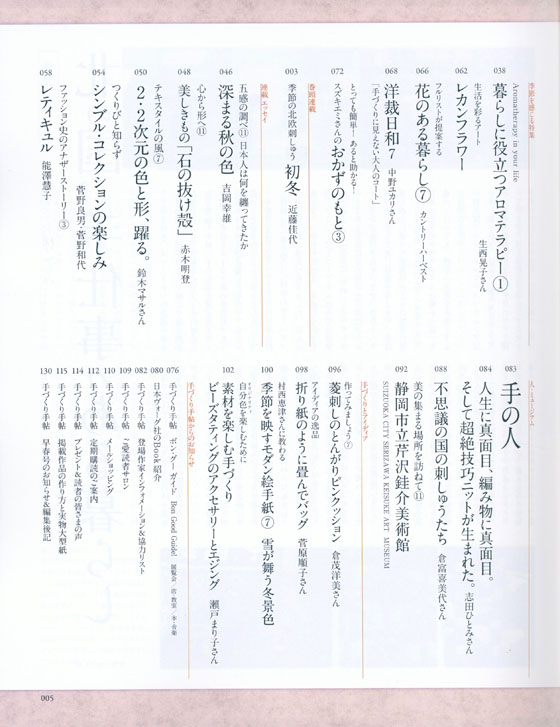 季節を感じる特集
Aromatherapy in your life
038 暮らしに役立つアロマテラピー① 生西晃子さん
生活を彩るアート
062 レカンフラワー
フルリストが提案する
066 花のある暮らし⑦ カントリーハーベスト
068 洋裁日和7 中野ユカリさん
「手づくりに見えない大人のコート」
とっても簡単！あると助かる！
072 スズキエミさんのおかずのもと③
巻頭連載
003 季節の北欧刺しゅう 初冬 近藤佳代
連載エッセイ
五感の調べ⑪ 日本人は何を纏ってきたか
046 深まる秋の色 吉岡幸雄
心から形へ⑪
048 美しきもの「石の抜け殻」 赤木明登
テキスタイルの風⑦
050 2・2次元の色と形、躍る。 鈴木マサルさん
つくりびと知らず
054 シンプル・コレクションの楽しみ 菅野良男・菅野和代
ファッション史のアナザーストーリー③
058 レティキュル 能澤慧子
人・ミュージアム
083 手の人
084 人生に真面目、編み物に真面目。
そして超絶技巧ニットが生まれた。 志田ひとみさん
088 不思議の国の刺しゅうたち 倉富喜美代さん
美の集まる場所を訪ねて⑪
092 静岡市立芹沢銈介美術館
SUIZUOKA CITY SERIZAWA KEISUKE ART MUSEUM
手づくりとアイディア
作ってみましょう⑦
096 菱刺しのとんがりピンクッション 倉茂洋美さん
アイディアの逸品
098 折り紙のように畳んでバッグ 菅原順子さん
村西恵津さんに教わる
100 季節を映すモダン絵手紙⑦ 雪が舞う冬景色
自分色を楽しむために
102 素材を楽しむ手づくり
ビーズタティングのアクセサリーとエジング 瀬戸まり子さん
手づくり手帖からのお知らせ
076 手づくり手帖 ボン・グッド ガイド Bon Good Guide! 展覧会／店／教室／本・音楽
080 日本ヴォーグ社のBook紹介
082 手づくり手帖 登場作家インフォメーション&協力リスト
109 手づくり手帖 ご愛読者サロン
110 手づくり手帖 メールショッピング
112 手づくり手帖 定期購読のご案内
114 手づくり手帖 プレゼント&読者の皆さまの声
115 手づくり手帖 掲載作品の作り方と実物大型紙
130 手づくり手帖 早春号のお知らせ&編集後記
005